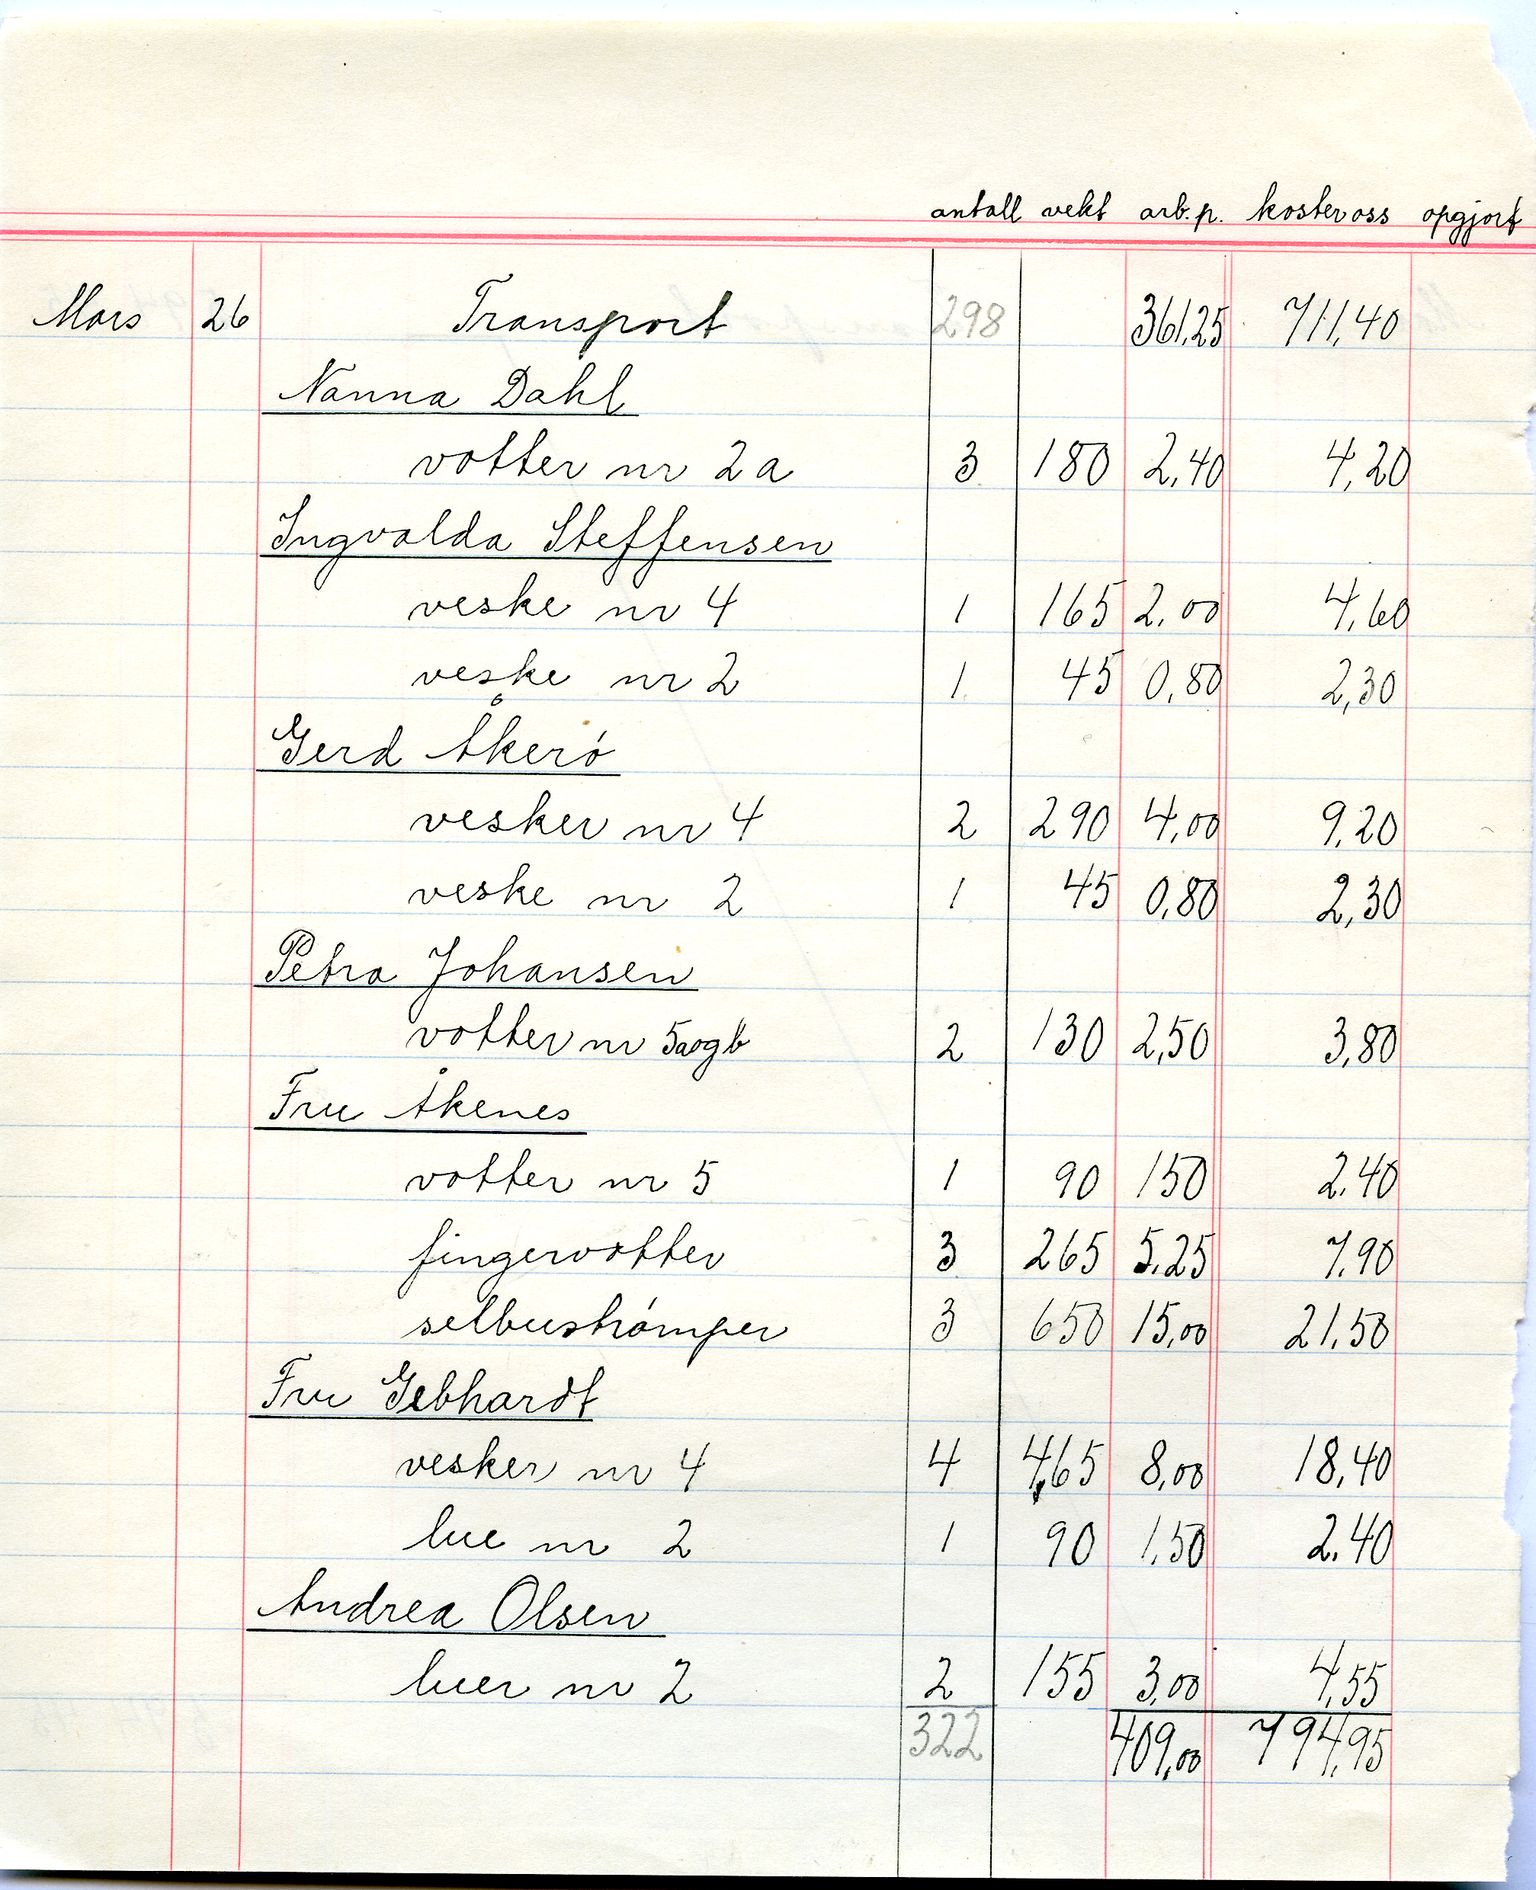 antall vekt arb.p. koster oss opgjort
Mars 26 Transport 298 361,25 711,40
Nanna Dahl
votter nr 2a 3 180 2,40 4,20
Ingvalda Steffensen
veske nr 4 1 165 2,00 4,60
veske nr 2 1 45 0,80 2,30
Gerd Åkerö
vesker nr 4 2 290 4,00 9,20
veske nr 2 1 45 0,80 2,30
Petra Johansen
votter nr 5a og b 2 130 2,50 3,80
Fru Åkenes
votter nr 5 1 90 150 2.40
fingervotter 3 265 5,25 7,90
selbustrømper 3 650 15,00 21,50
Fru Gebhardt
vesker nr 4 4 465 8,00 18,40
lue nr 2 1 90 1,50 2.40
Andrea Olsen
luer nr 2 2 155 3,00 4,55
322 409,00 794,95